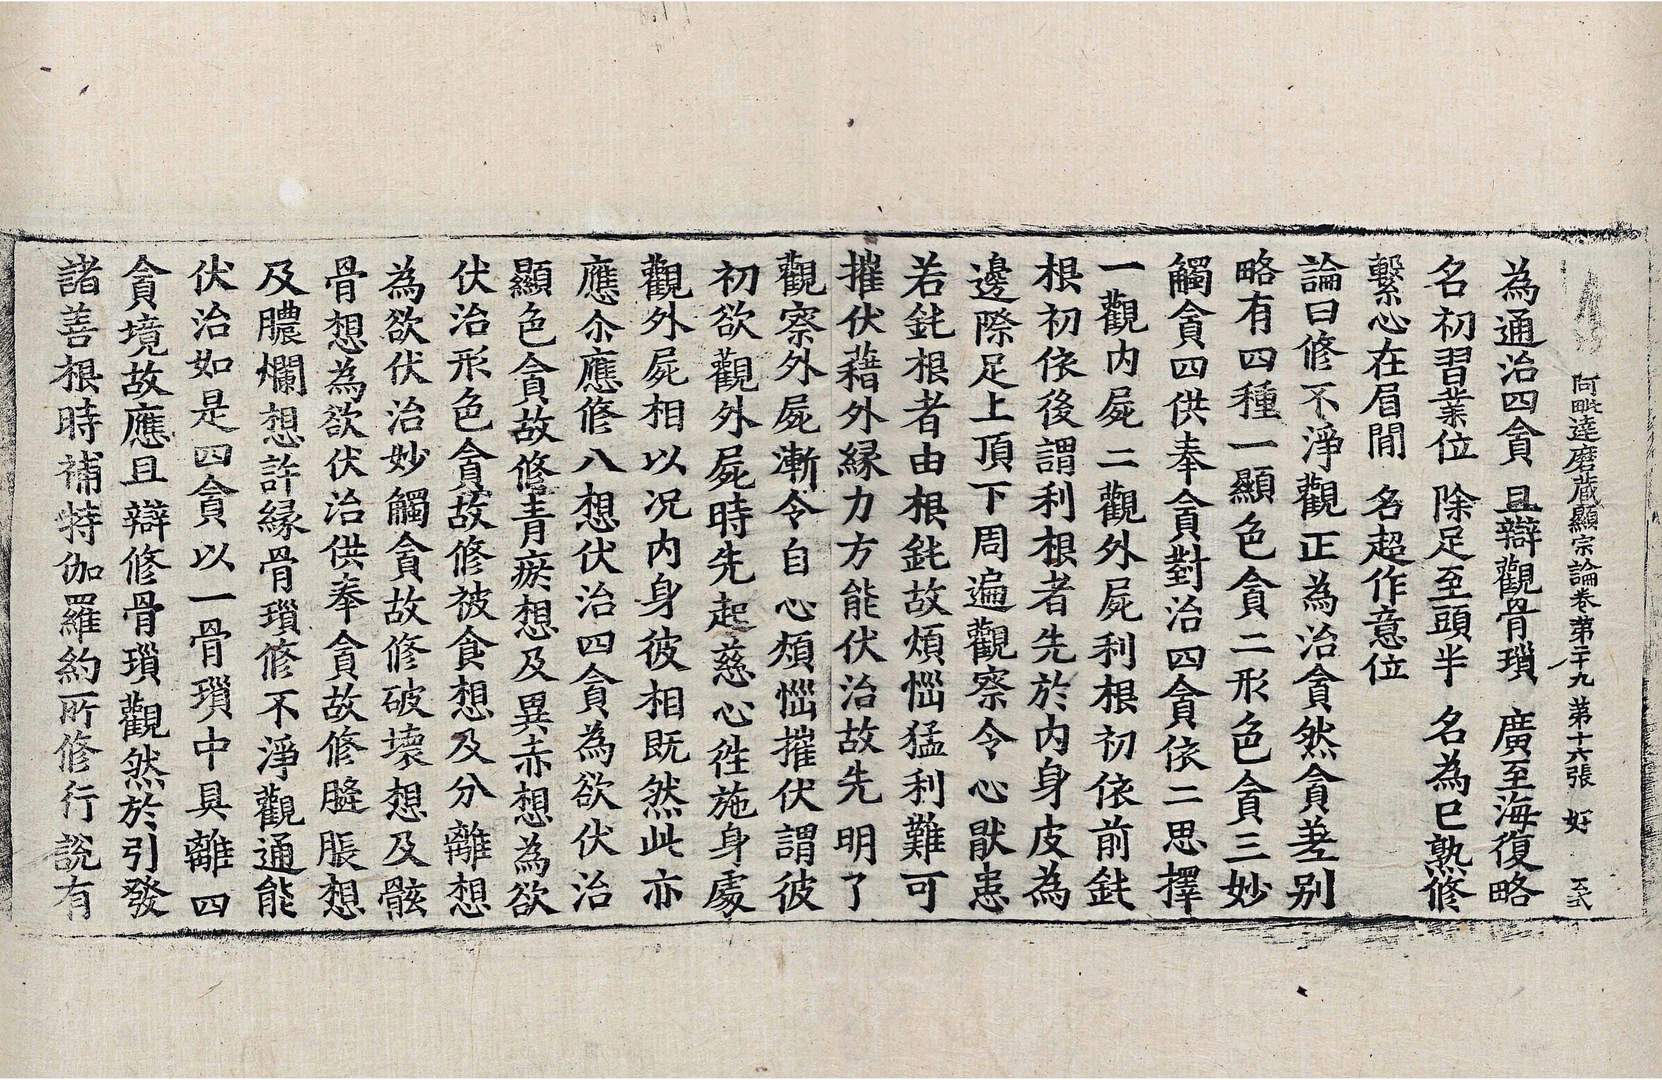 阿毗達磨藏顯宗論卷第二十九 第十六張 好
為通治四貪 且辯觀骨瑣 廣至海復略
名初習業位 除足至頭半 名為已熟修
繫心在眉間 名超作意位
論曰修不淨觀正為治貪然貪差別
略有四種一顯色貪二形色貪三妙
觸貪四供奉貪對治四貪依二思擇
一觀內屍二觀外屍利根初依前鈍
根初依後謂利根者先於內身皮為
邊際足上頂下周遍觀察令心猒患
若鈍根者由根鈍故煩惱猛利難可
摧伏藉外緣力方能伏治故先明了
觀察外屍漸令自心煩惱摧伏謂彼
初欲觀外屍時先起慈心徃施身處
觀外屍相以况內身彼相既然此亦
應尒應修八想伏治四貪為欲伏治
顯色貪故修青瘀想及異赤想為欲
伏治形色貪故修被食想及分離想
為欲伏治妙觸貪故修破壞想及骸
骨想為欲伏治供奉貪故修膖脹想
及膿爛想許緣骨瑣修不淨觀通能
伏治如是四貪以一骨瑣中具離四
貪境故應且辯修骨瑣觀然於引發
諸善根時補特伽羅約所修行說有